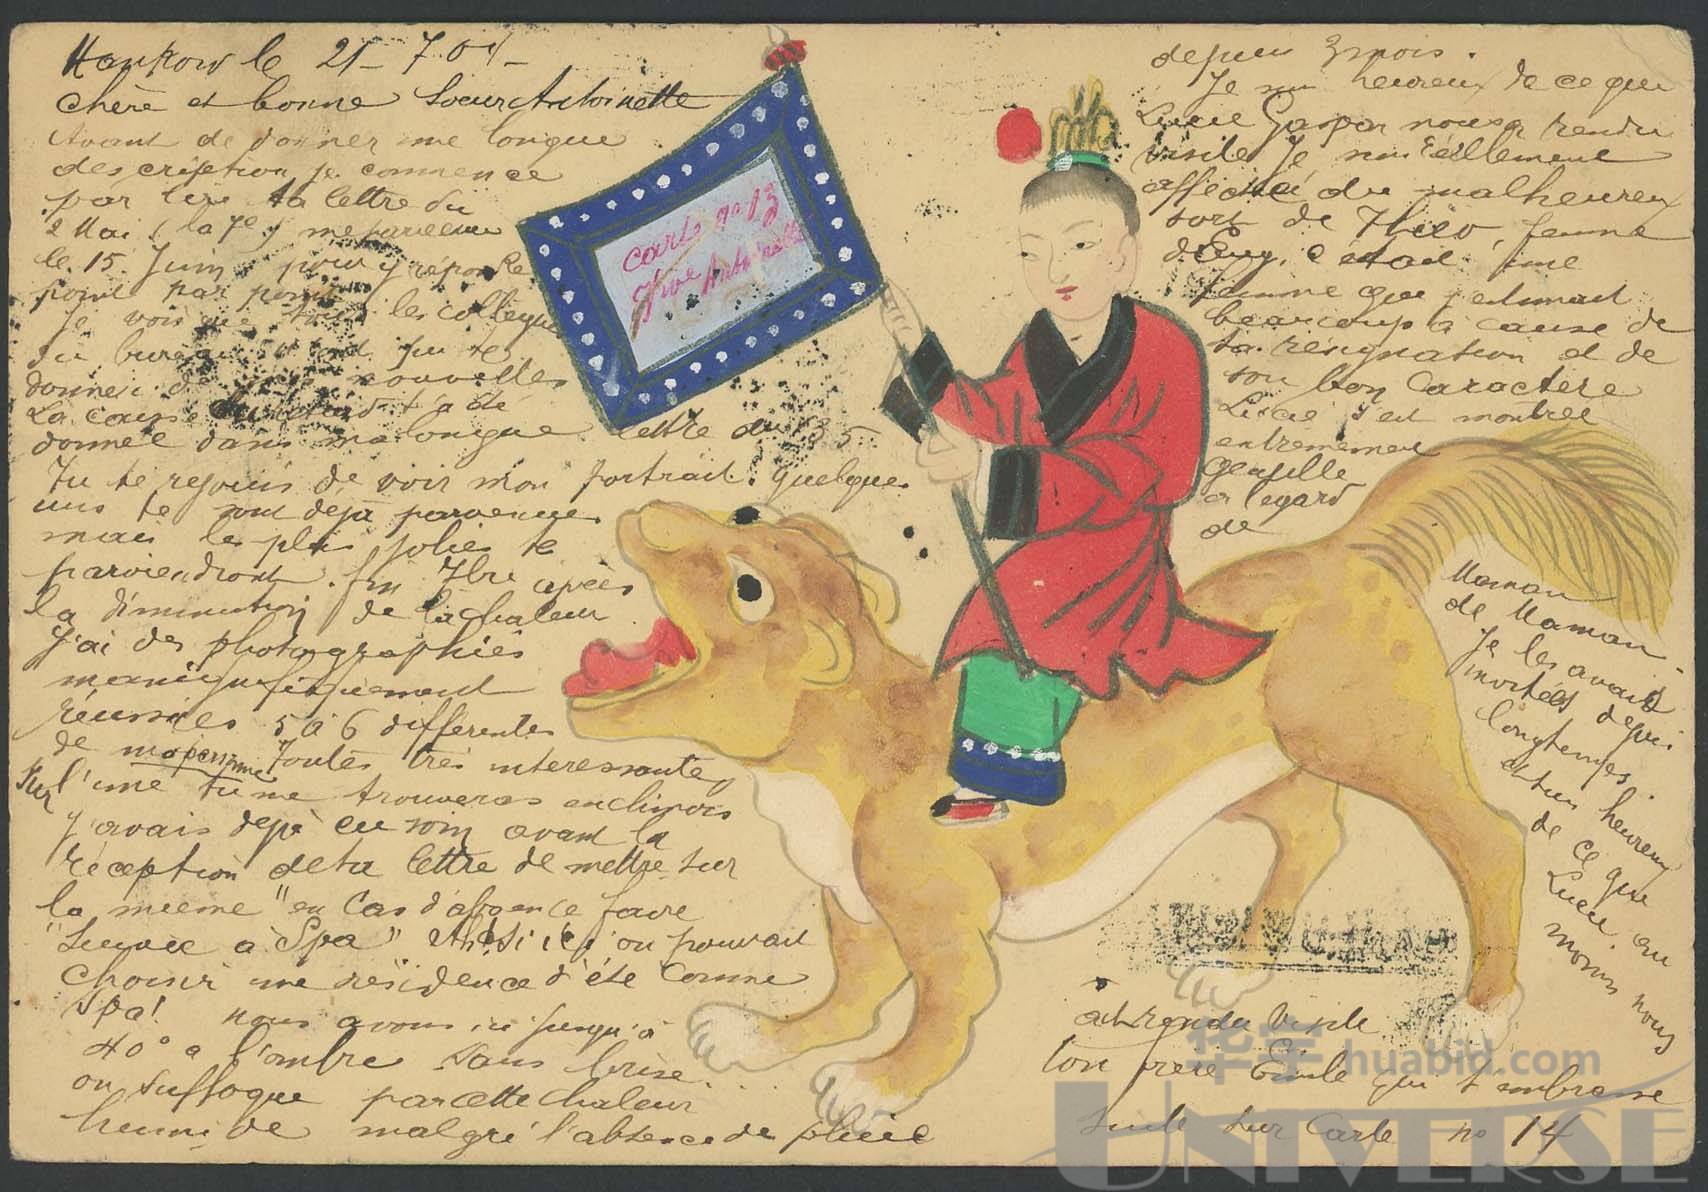 Hankow le 21-7 01-
Chère et bonne Soeur Antoinette
Avant de donner une longue
description je commence
par lire ta lettre du
2 Mai (la 7e) me parvenue
le 15 Juin pour y répondre
point par point
Je vois que tous les collègues
du bureau
donner de nouvelles
La cause du retard t'a été
donnée dans ma longue lettre du
Tu te rejouis de voir mon portrait. quelques
uns te sont déjà parvenues
mais les plus jolies te
parviendront fin 7bre après
la diminution de la chaleur
J'ai des photographies
réussies 5 à 6 differentes
de ma personne Toutes très interessantes
Sur l'une tu me trouveras en chinois
J'avais déjà eu soin avant la
réception de ta lettre de mettre sur
la mienne "en Cas d'absence faire
"Suivre à Spa" ici on pouvait
choisir une résidence d'été Comme
Spa! nous avons ici jusqu'à
40° a l'ombre sans brise....
on suffoque par cette chaleur
humide malgré l'absence de pluie
carte no 13
Antoinette
depuis 3 mois.
Je suis heureux de ce que
Lucie Gaspar nous a rendu
visite. Je suis réellement
affecté du malheureux
sort de Théo, femme
d'Eug, c'était une
femme que j'estimait
beaucoup à cause de
sa résignation et de
son bon Caractère
Lucie s'est montrée
extremement
gentille
a l'egard
de
Maman
de Maman.
Je les avais
invitées depuis
longtemps.
heureux
de ce que
Lucie au
moins nous
ait rendu visite
ton frère Emile qui t'embrasse
Suite sur Carte no 14
华宇 huabid.com
UNIVERSE